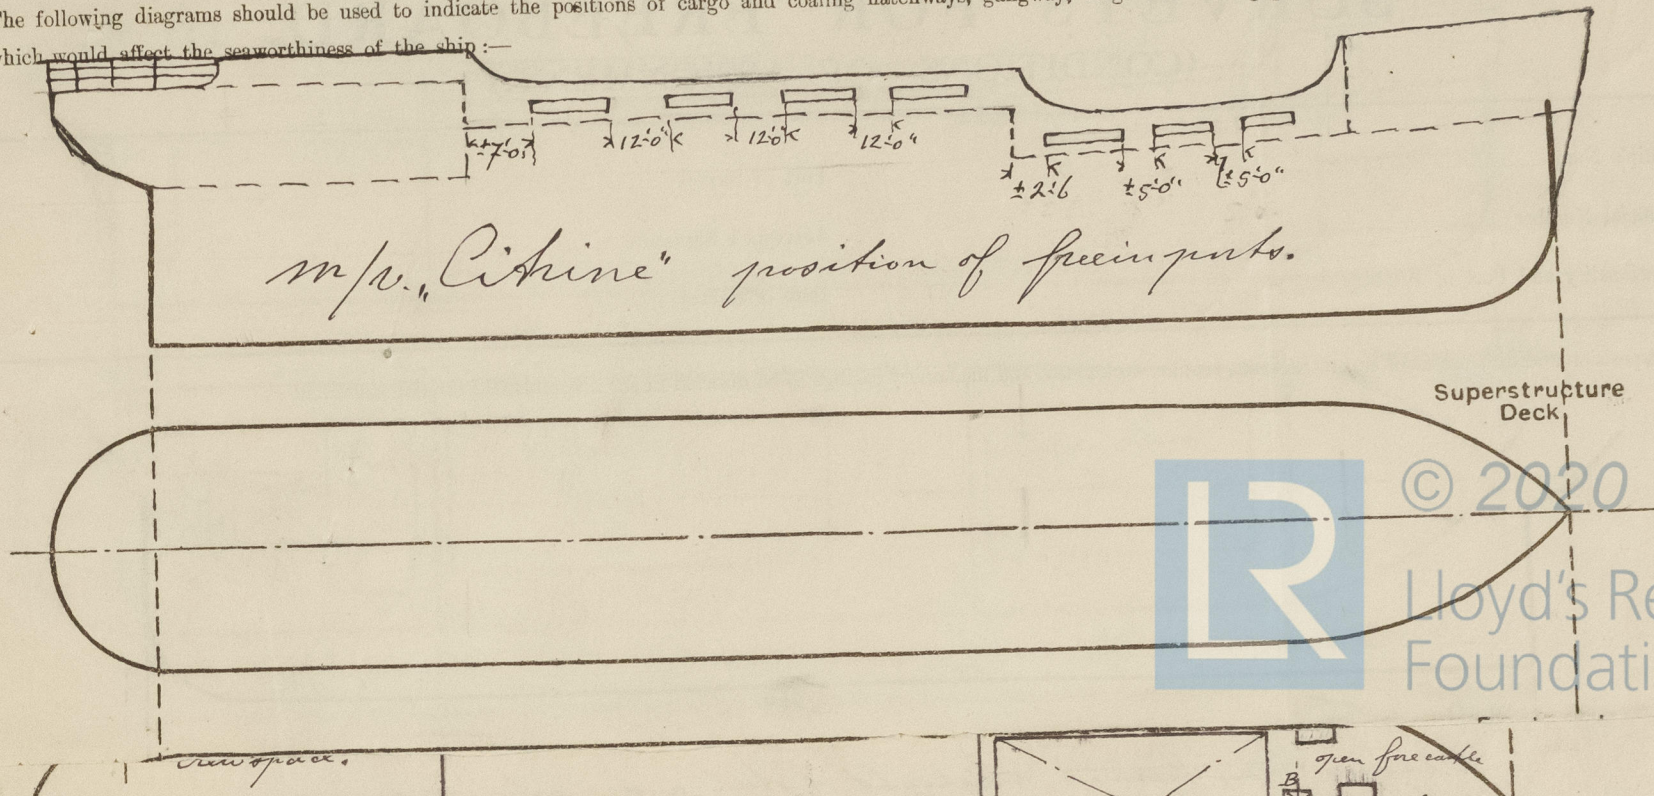 The following diagrams should be used to indicate the positions of cargo and coaling hatchways,
which would affect the seaworthiness of the ship :—
±7'-0"
12'-0"
12'-0"
12'-0"
±2'-6
±5'-0"
±5'-0"
m/v. „Citrine" position of freeing ports.
Superstructure
Deck
© 2020
LR
Lloyd's Re
Foundati
crew space.
open forecastle
B